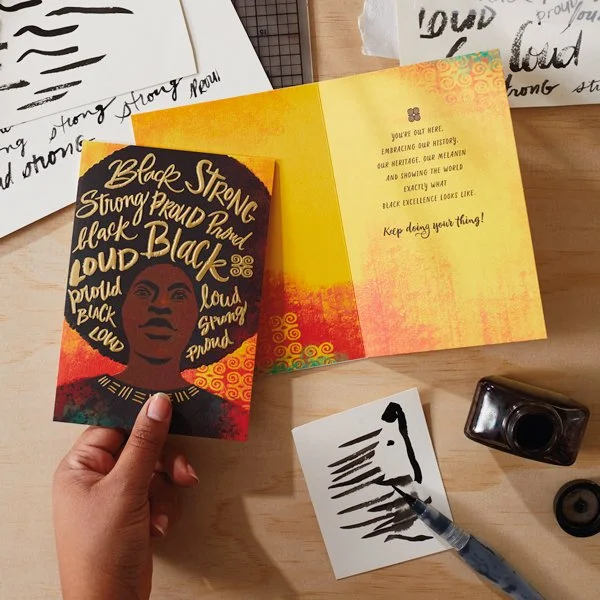 LOUD
proud
loud
Loud
strong
strong
strong
strong
Proud
strong
Black STRONG
Strong PROUD Proud
black Black
LOUD
proud
BLACK
LOUD
loud
Strong
proud
YOU'RE OUT HERE,
EMBRACING OUR HISTORY,
OUR HERITAGE, OUR MELANIN
AND SHOWING THE WORLD
EXACTLY WHAT
BLACK EXCELLENCE LOOKS LIKE.
Keep doing your thing!